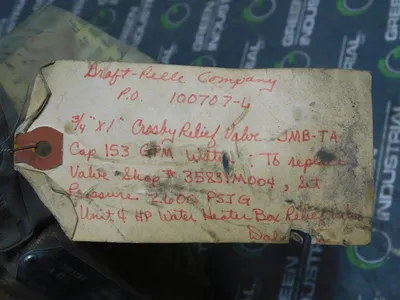 Draft-Pelle Company
P.O. 100707-4
3/4" X 1" Crosby Relief Valve JMB-TA
Cap 153 GPM Water To replace
Valve Shop # 35831M004, Set
Pressure 2600 PSIG
Unit 4 HP Water Heater Box Relief
GREEN
INDUSTRIAL
GREEN
INDUSTRIAL